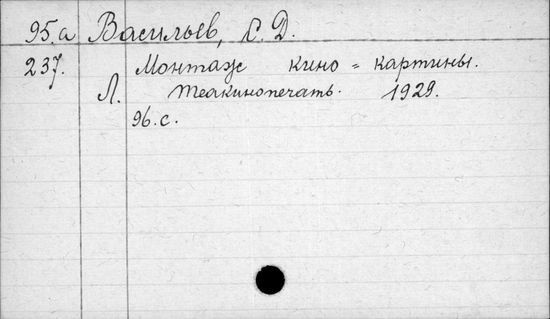 95.а Васильев, С. Д.
237. Монтаж кино = картины.
Л. Теакинопечать. 1929.
96.с.